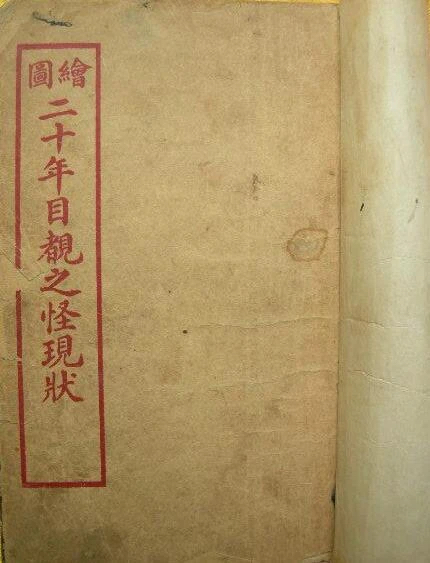 繪圖
二十年目覩之怪現狀